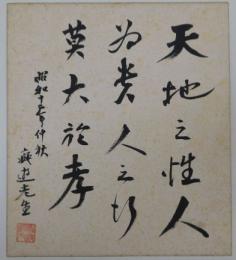 天地之性人
為貴人之行
莫大於孝
昭和十五年仲秋